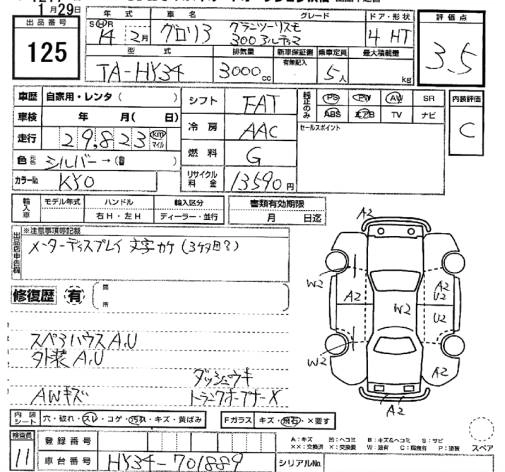 1月29日
出品番号
125
年式 車名 グレード ドア・形状 評価点
S H R 14年 2月 グロリア グランツーリスモ 300アルティマ 4 HT 3.5
型式 排気量 新車保証書 有無記入 乗車定員 最大積載量
TA-HY34 3000cc 5人 kg
車歴 自家用・レンタ( )
車検 年 月(日)
走行 29,823 km マイル
色 シルバー→( )
カラーNo. KY0
シフト FAT
冷房 AAC
燃料 G
リサイクル料金 13590円
純正のみ PS PW AW SR
ABS エアB TV ナビ
セールスポイント
内装評価
C
輸入車 モデル年式 ハンドル 輸入区分
右H・左H ディーラー・並行
書類有効期限
月 日迄
出品店申告欄 ※注意事項等記載
メーターディスプレイ 文字カケ
修復歴 有 箇所
A2
W2
A2
W2
W2
A2
U2
U2
A2
A2
スペアハウスA,U
外装A,U
ダッシュウキ
AWキズ トランクオープナーX
内装シート 穴・破れ・スレ・コゲ・汚れ・キズ・黄ばみ
Fガラス キズ・飛石・×要す
検査員 11
登録番号
車台番号 HY34-701889
シリアルNo.
スペア